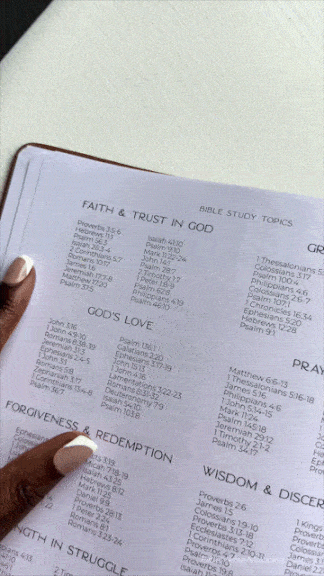 BIBLE STUDY TOPICS
FAITH & TRUST IN GOD
Proverbs 3:5-6
Hebrews 11:1
Psalm 56:3
Isaiah 26:3-4
2 Corinthians 5:7
Romans 10:17
James 1:6
Jeremiah 17:7-8
Matthew 17:20
Psalm 37:5
Isaiah 41:10
Psalm 9:10
Mark 11:22-24
John 14:1
Psalm 28:7
2 Timothy 1:7
1 Peter 1:8-9
Psalm 62:8
Philippians 4:19
Psalm 46:10
GOD'S LOVE
John 3:16
1 John 4:9-10
Romans 8:38-39
Jeremiah 31:3
Ephesians 2:4-5
1 John 3:1
Romans 5:8
Zephaniah 3:17
2 Corinthians 13:4-8
Psalm 36:7
Psalm 136:1
Galatians 2:20
Ephesians 3:17-19
John 15:13
1 John 4:18
Lamentations 3:22-23
Romans 8:31-32
Deuteronomy 7:9
Isaiah 54:10
Psalm 103:8
FORGIVENESS & REDEMPTION
Micah 7:18-19
Isaiah 43:25
Hebrews 8:12
Mark 11:25
Daniel 9:9
Proverbs 28:13
1 Peter 2:24
Romans 8:1
Romans 3:23-24
IN STRUGGLE
GR
1 Thessalonians 5
Colossians 3:17
Psalm 100:4
Philippians 4:6
Colossians 2:6
Psalm 107:1
1 Chronicles 16:34
Ephesians 5:20
Hebrews 12:28
Psalm 9:1
PRAY
Matthew 6:6-13
1 Thessalonians 5:16-18
James 5:16
Philippians 4:6
1 John 5:14-15
Mark 11:24
Psalm 145:18
Jeremiah 29:12
1 Timothy 2:1-2
Psalm 34:17
WISDOM & DISCER
Proverbs 2:6
James 1:5
Colossians 1:9-10
Proverbs 3:13-18
Ecclesiastes 7:12
1 Corinthians 2:10-11
Proverbs 4:7
Psalm
Proverbs 19:8
Isaiah
1 Kings
Prover